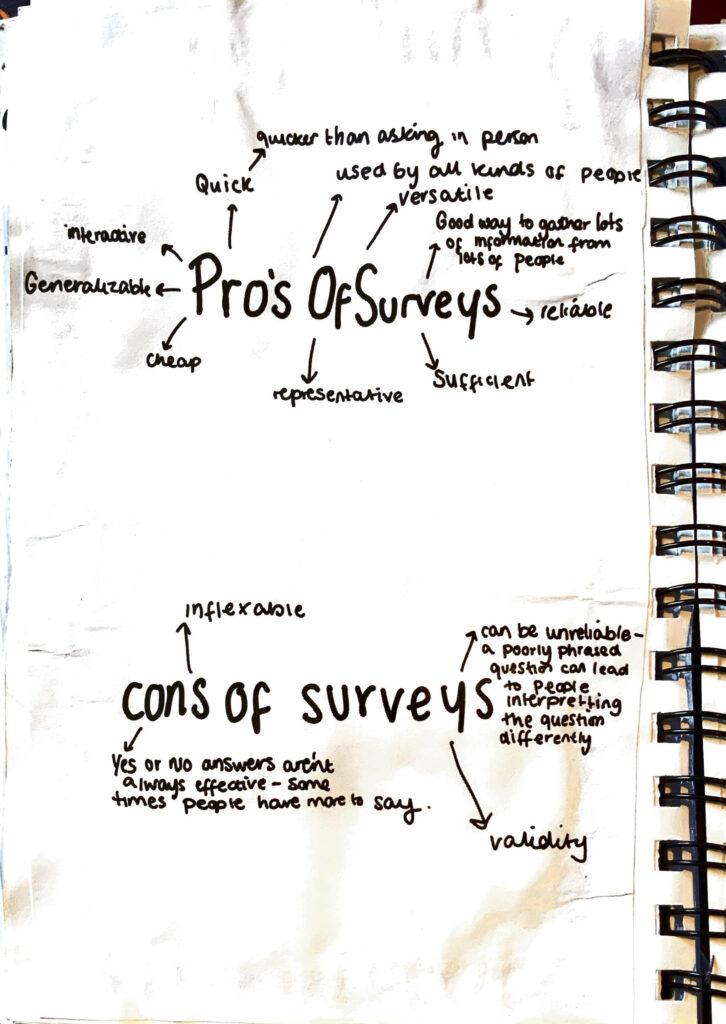 quicker than asking in person
Quick
used by all kinds of people
versatile
Good way to gather lots
of information from
lots of people
interactive
Generalizable
Pro's Of Surveys
reliable
cheap
representative
Sufficient
inflexable
can be unreliable-
a poorly phrased
question can lead
to people
interpretting
the question
differently
cons of surveys
Yes or No answers aren't
always effective - some
times people have more to say.
validity